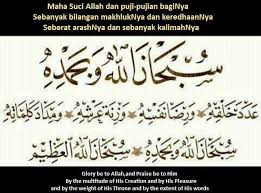 Maha Suci Allah dan puji-pujian bagiNya
Sebanyak bilangan makhlukNya dan keredhaanNya
Seberat arashNya dan sebanyak kalimahNya
سُبْحَانَ اللَّهِ وَبِحَمْدِهِ
عَدَدَ خَلْقِهِ وَرِضَا نَفْسِهِ وَزِنَةَ عَرْشِهِ وَمِدَادَ كَلِمَاتِهِ
سُبْحَانَ اللَّهِ وَبِحَمْدِهِ سُبْحَانَ اللَّهِ الْعَظِيمِ
Glory be to Allah,and Praise be to Him
By the multitude of His Creation and by His Pleasure
and by the weight of His Throne and by the extent of His words